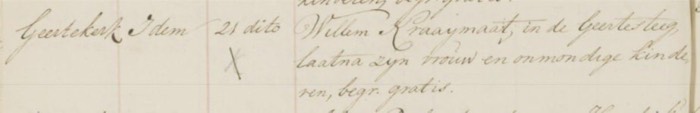 Geertekerk Idem 21 dito Willem Kraaymaat, in de Geertesteeg,
laatna zyn vrouw en onmondige kinde,
ren, begr. gratis.